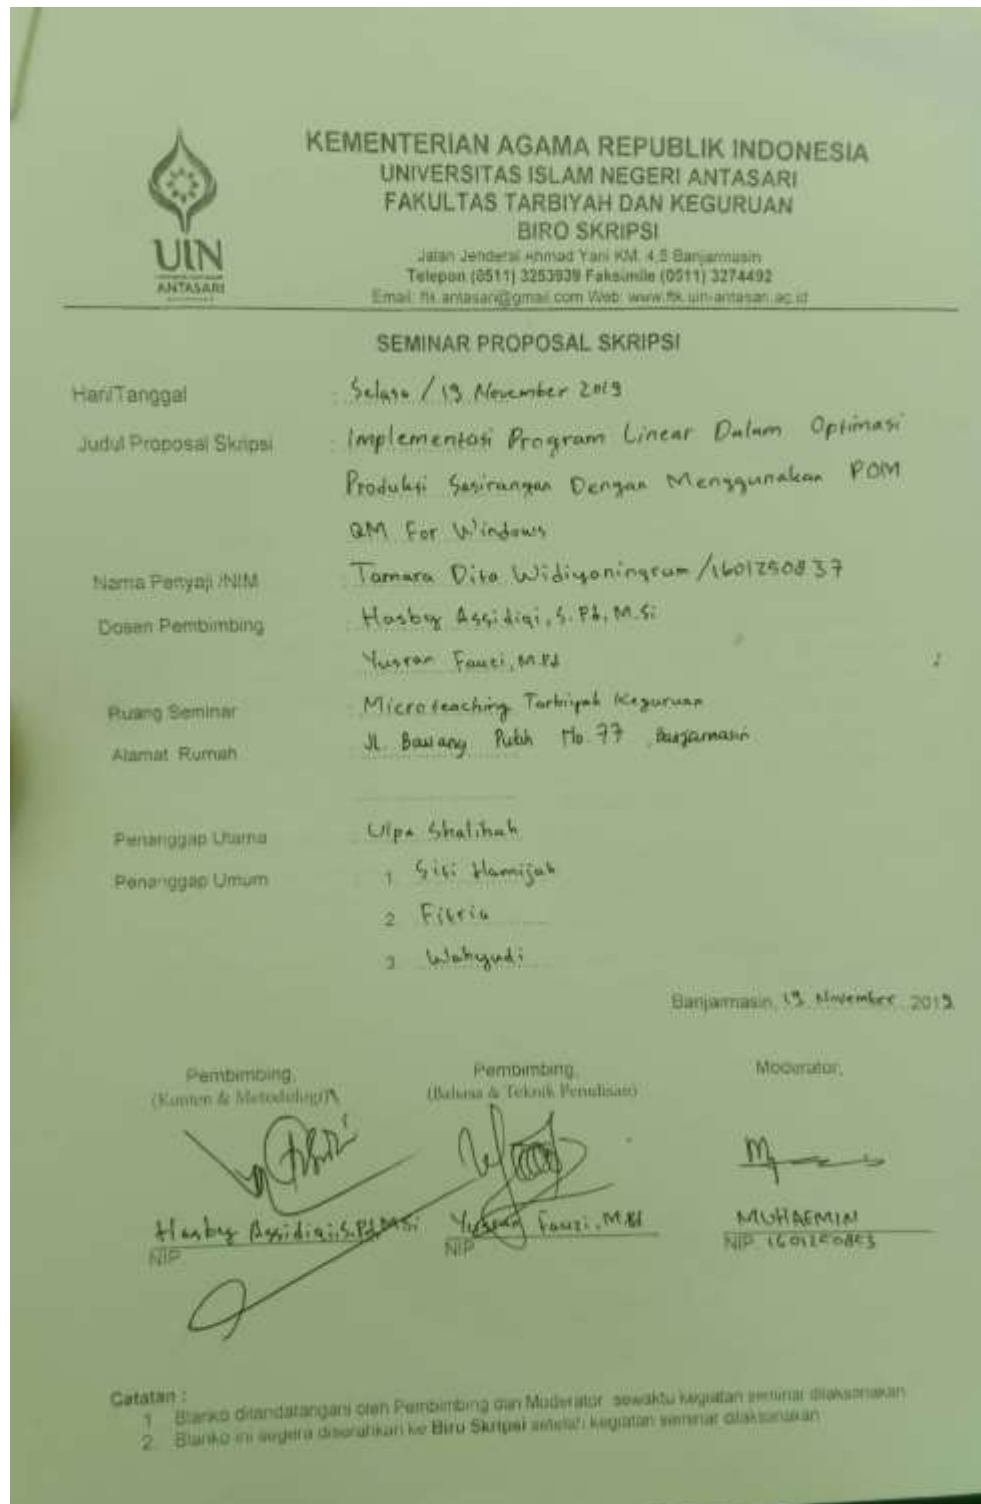 UIN
ANTASARI
KEMENTERIAN AGAMA REPUBLIK INDONESIA
UNIVERSITAS ISLAM NEGERI ANTASARI
FAKULTAS TARBIYAH DAN KEGURUAN
BIRO SKRIPSI
Jalan Jenderal Ahmad Yani KM. 4,5 Banjarmasin
Telepon (0511) 3253939 Faksimile (0511) 3274492
Email: ftk.antasari@gmail.com Web: www.ftk.uin-antasari.ac.id
SEMINAR PROPOSAL SKRIPSI
Hari/Tanggal : Selasa / 19 November 2019
Judul Proposal Skripsi : Implementasi Program Linear Dalam Optimasi
Produksi Sasirangan Dengan Menggunakan POM
QM For Windows
Nama Penyaji /NIM : Tamara Dita Widiyaningrum /1601250837
Dosen Pembimbing : Hasby Assidiqi, S.Pd, M.Si
Yusran Fauzi, M.Pd
Ruang Seminar : Microteaching Tarbiyah Keguruan
Alamat Rumah : Jl. Bawang Putih No. 77 Banjarmasin
Penanggap Utama : Ulpa Shalihah
Penanggap Umum : 1. Siti Hamijah
2. Fitria
3. Wahyudi
Banjarmasin, 19 November 2019
Pembimbing, Pembimbing, Moderator,
(Konten & Metodologi) (Bahasa & Teknik Penulisan)
Hasby Assidiqi, S.Pd, M.Si Yusran Fauzi, M.Pd MUHAEMIN
NIP. NIP. NIP. 1601250853
Catatan :
1. Blanko ditandatangani oleh Pembimbing dan Moderator sewaktu kegiatan seminar dilaksanakan
2. Blanko ini segera diserahkan ke Biro Skripsi setelah kegiatan seminar dilaksanakan